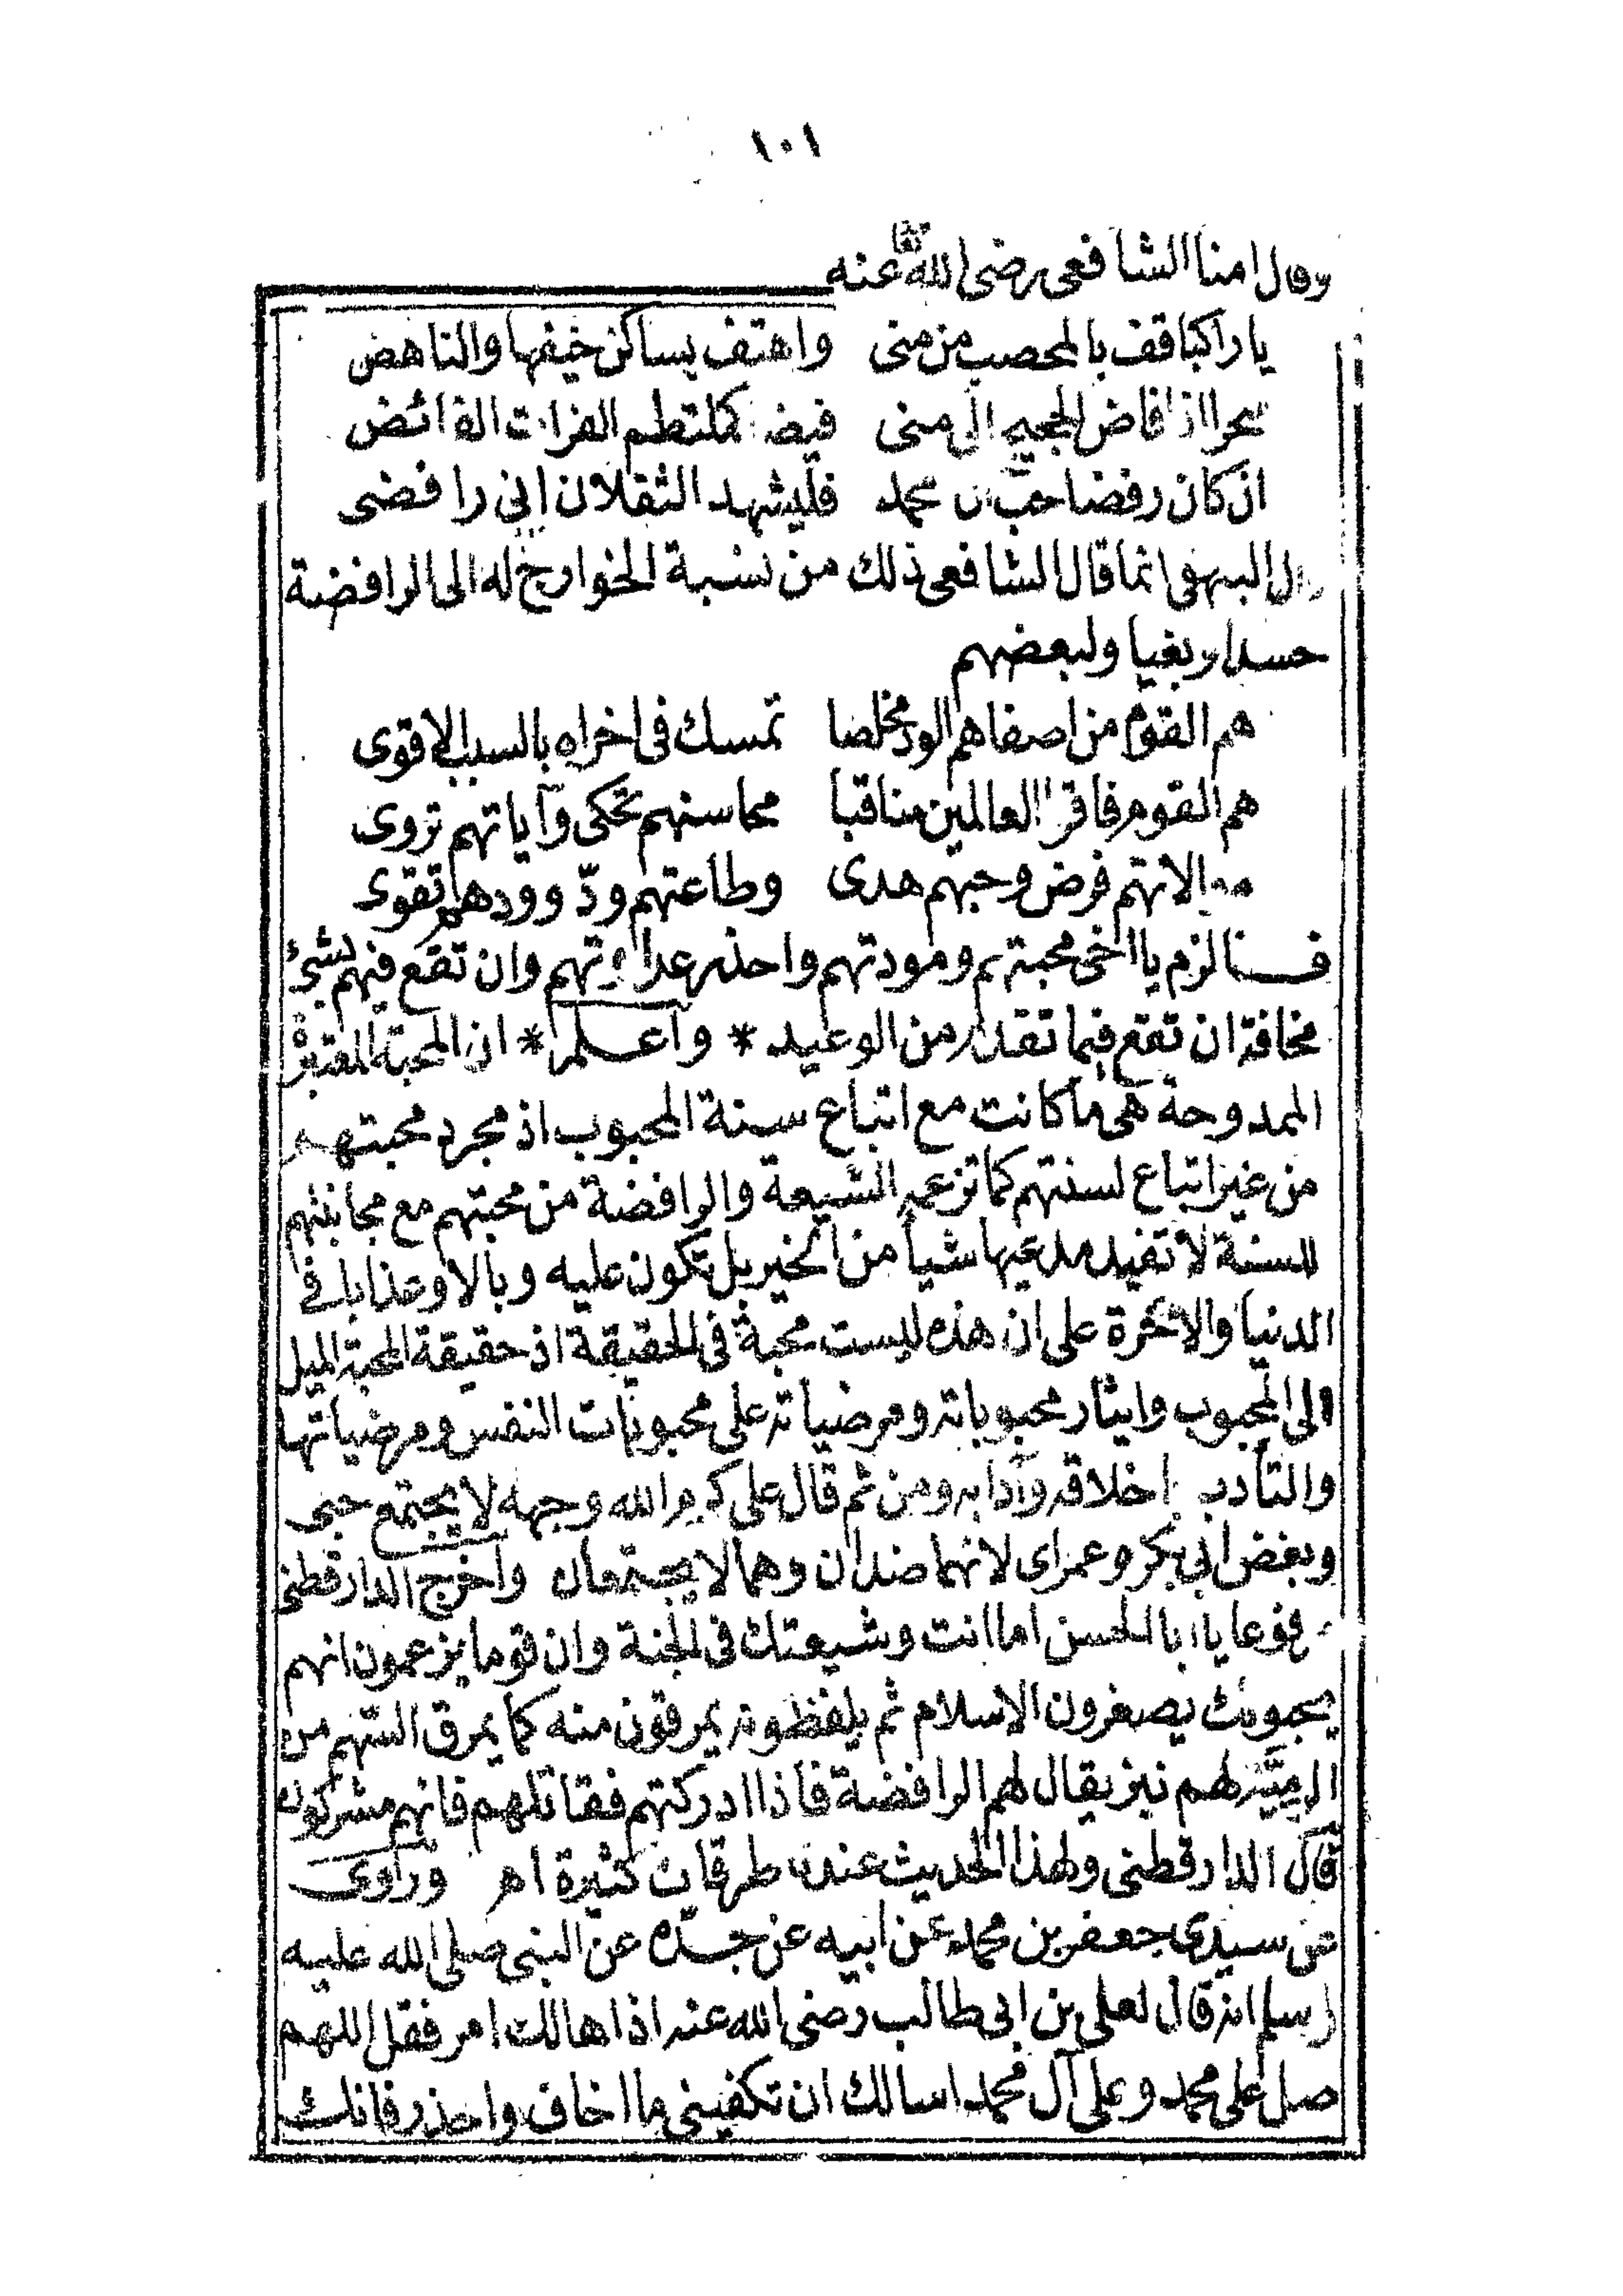 ١٠١
وقال امنا الشافعى رضى الله تعا عنه
يا راكبا قف بالمحصب من منى واهتف بساكن خيفها والناهض
سحرا اذا فاض الحجيج الى منى فيضا كملتطم الفرات الفائض
ان كان رفضا حب ال محمد فليشهد الثقلان انى رافضى
قال البيهقى انما قال الشافعى ذلك من نسبة الخوارج له الى الرافضة
حسدا وبغيا ولبعضهم
هم القوم من اصفاهم الود مخلصا تمسك فى اخراه بالسبب الاقوى
هم القوم فاقوا العالمين مناقبا محاسنهم تحكى وآياتهم تروى
موالاتهم فرض وحبهم هدى وطاعتهم ودّ وودهم تقوى
فــالزم يا اخى محبتهم ومودتهم واحذر عداوتهم وان تقع فيهم بشئ
مخافة ان تقع فيما تقدم من الوعيد * واعــلم * ان المحبة المعتبرة
الممدوحة هى ما كانت مع اتباع سنة المحبوب اذ مجرد محبتهم
من غير اتباع لسنتهم كما تزعم الشيعة والرافضة من محبتهم مع مجانبتهم
للسنة لا تفيد مدعيها شيأ من الخير بل تكون عليه وبالا وعذابا فى
الدنيا والآخرة على ان هذه ليست محبة فى الحقيقة اذ حقيقة المحبة الميل
الى المحبوب وايثار محبوباته ومرضياته على محبوبات النفس ومرضياتها
والتأدب باخلاقه وآدابه ومن ثم قال على كرم الله وجهه لا يجتمع حبى
وبغض ابى بكر وعمر اى لانهما ضدان وهما لا يجتمعان واخرج الدارقطنى
مرفوعا يا ابا الحسن اما انت وشيعتك فى الجنة وان قوما يزعمون انهم
يحبونك يصغرون الاسلام ثم يلفظونه يمرقون منه كما يمرق السهم من
الرميّة لهم نبز يقال لهم الرافضة فاذا ادركتهم فقاتلهم فانهم مشركون
قال الدارقطنى ولهذا الحديث عندنا طرقات كثيرة اهـ وروى
عن سيدى جعفر بن محمد عن ابيه عن جدّه عن النبى صلى الله عليه
وسلم انه قال لعلى بن ابى طالب رضى الله عنه اذا هالك امر فقل اللهم
صل على محمد وعلى آل محمد اسالك ان تكفينى ما اخاف واحذر فانك